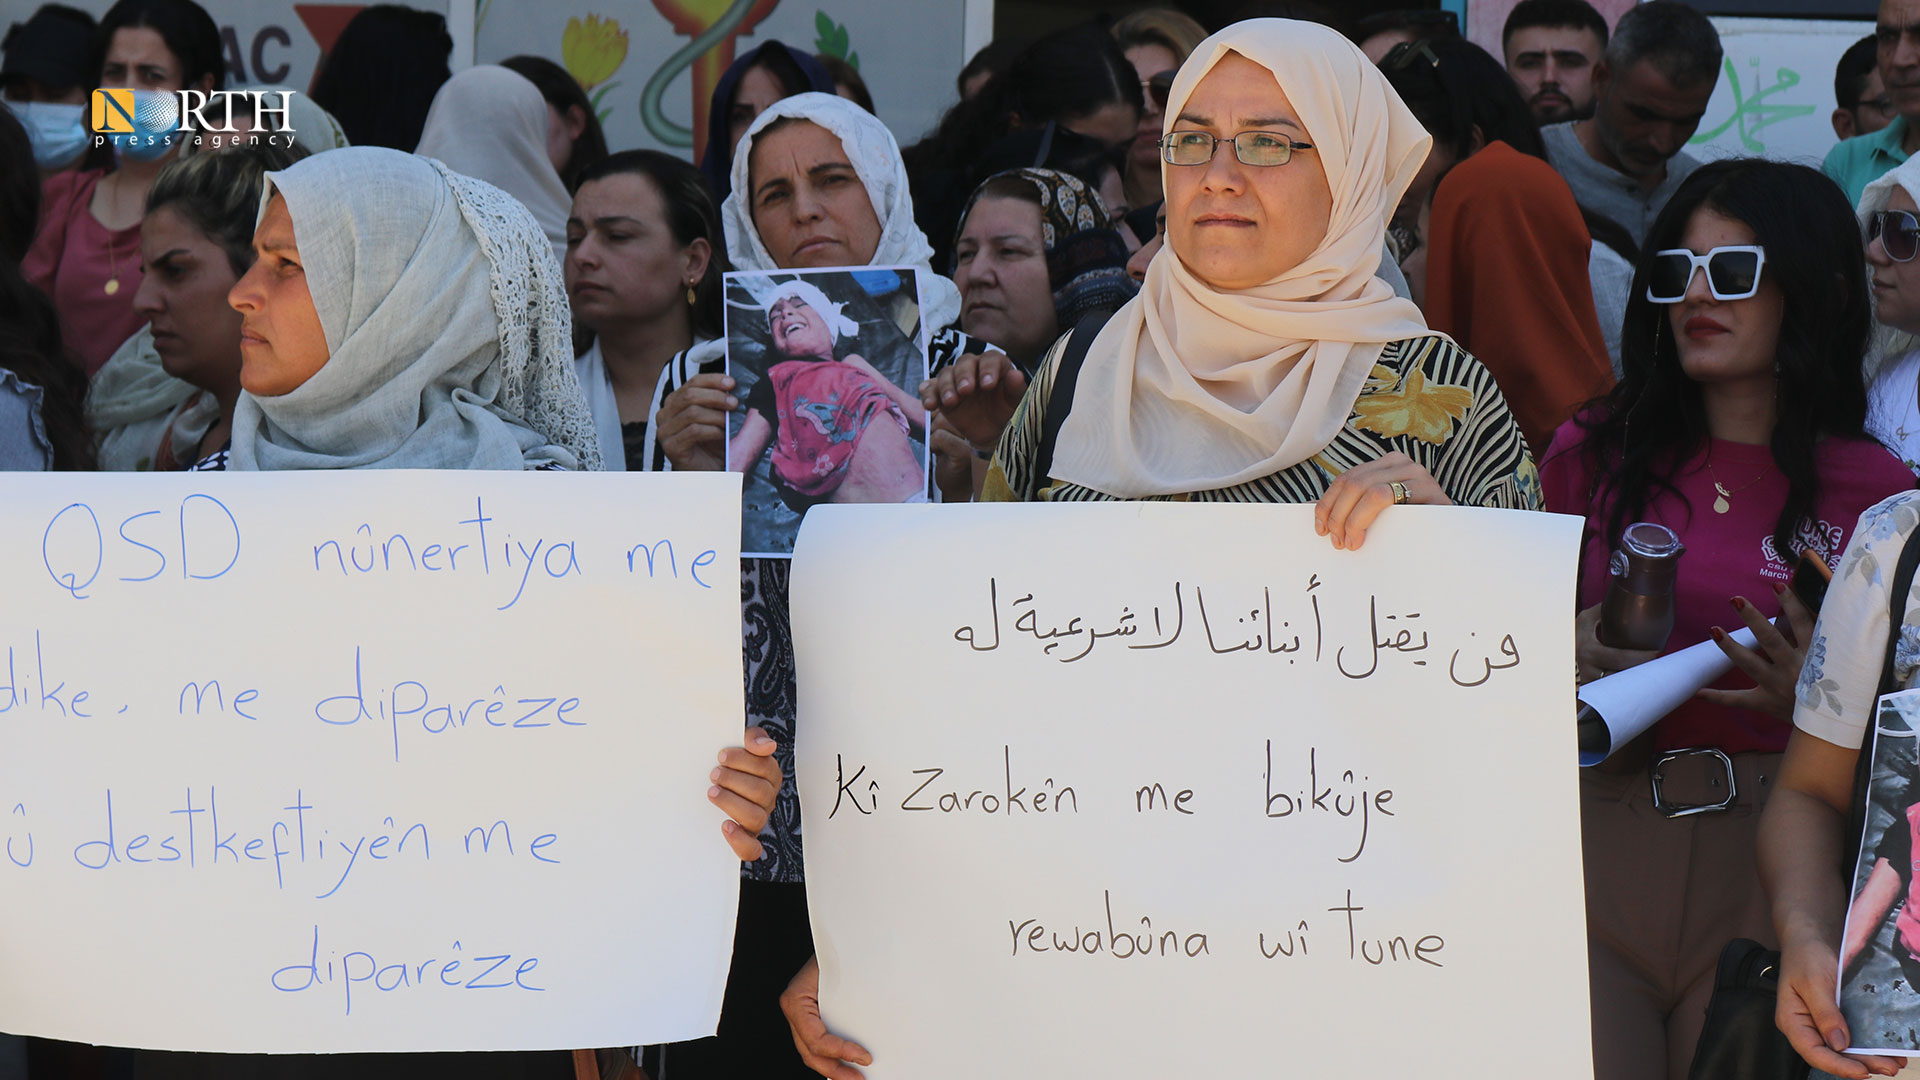 AC
NORTH
press agency
QSD nûnertiya me
dike, me diparêze
û destkeftiyên me
diparêze
من يقتل أبنائنا لا شرعية له
Kî Zarokên me bikûje
rewabûna wî tune
محمد
March